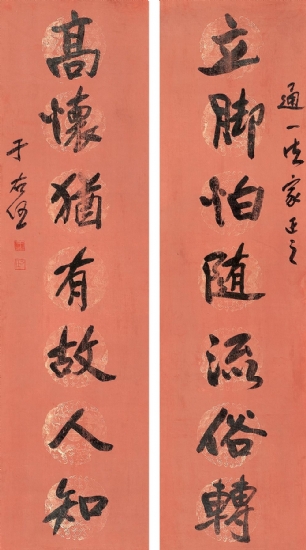 通一法家正之
立脚怕随流俗轉
高懷猶有故人知
于右任